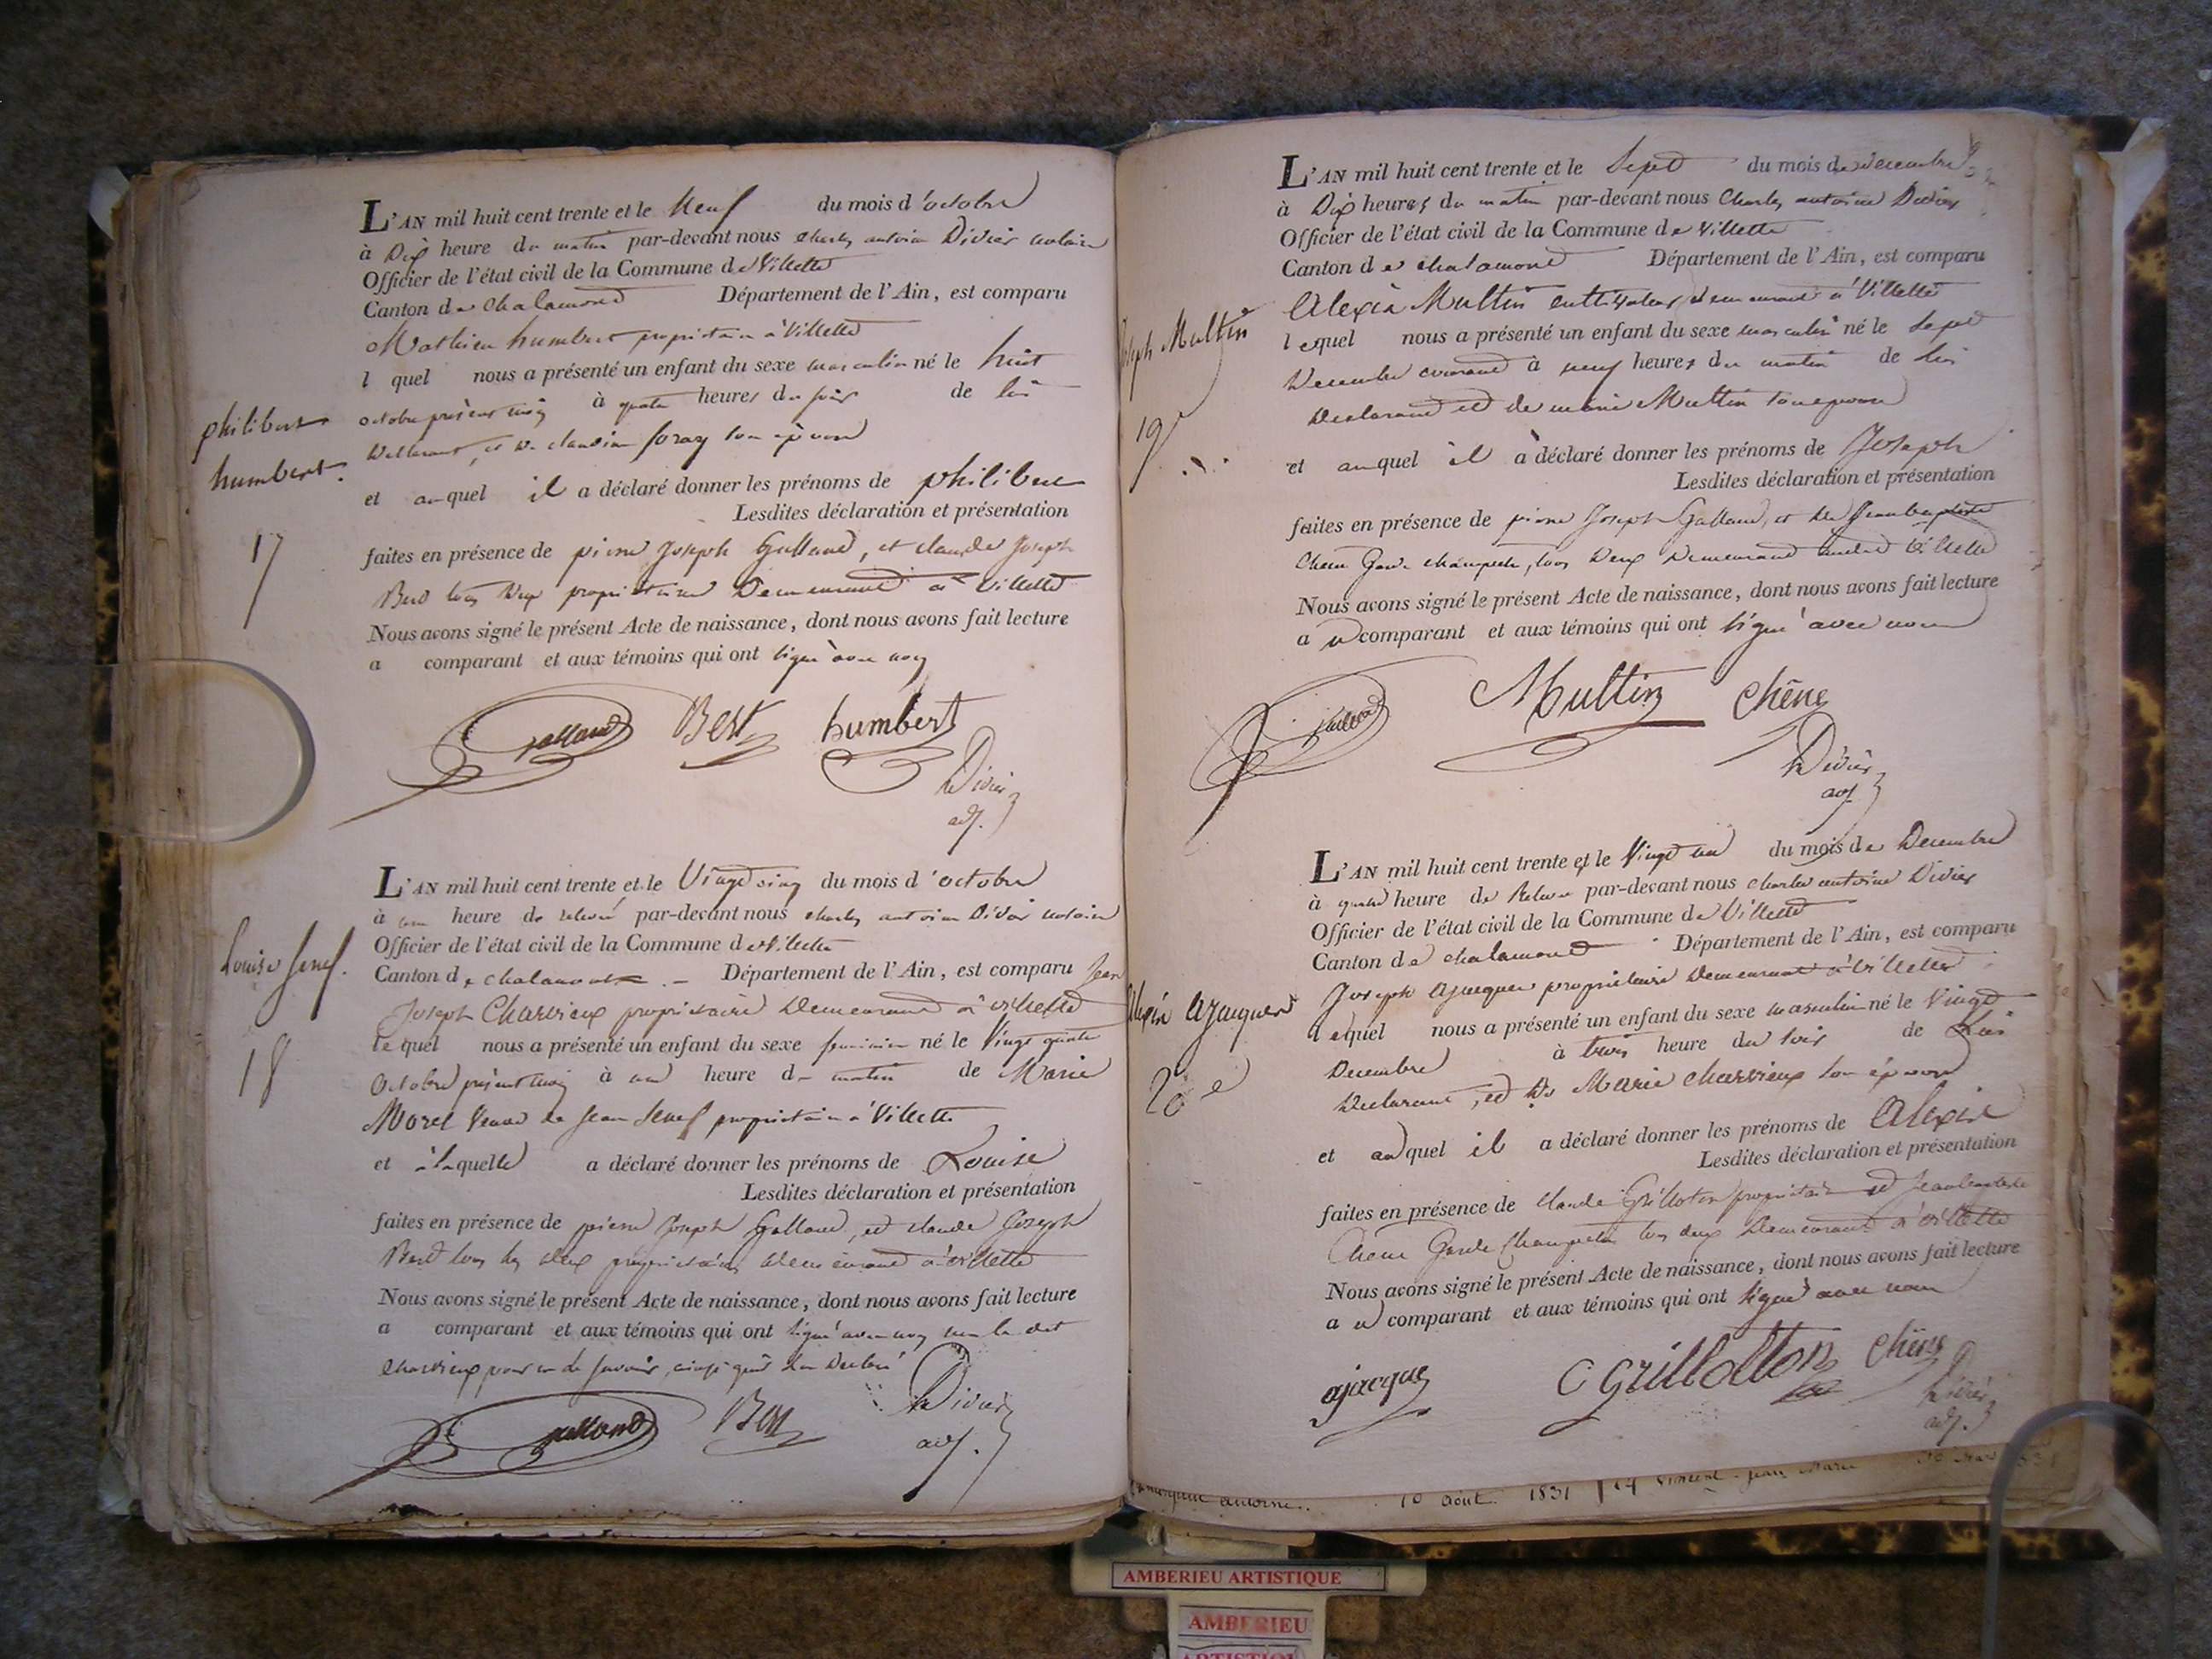 L'AN mil huit cent trente et le Neuf du mois d'octobre
à Dix heure du matin par-devant nous Charles antoine Didier notaire
Officier de l'état civil de la Commune de Villette
Canton de Chalamond Département de l'Ain, est comparu
Mathieu humbert propriétaire à Villette
l quel nous a présenté un enfant du sexe masculin né le huit
octobre présent mois à quatre heures du soir de lui
Déclarant, et de claudine foray son épouse
et auquel il a déclaré donner les prénoms de philibert
Lesdites déclaration et présentation
faites en présence de pierre Joseph Galland, et claude Joseph
Best tous deux propriétaires Demeurant à Villette
Nous avons signé le présent Acte de naissance, dont nous avons fait lecture
a comparant et aux témoins qui ont signé avec nous
philibert
humbert.
17
galland Best humbert
Didier
adj.
L'AN mil huit cent trente et le Vingt cinq du mois d'octobre
à une heure de relevé par-devant nous charles antoine Didier notaire
Officier de l'état civil de la Commune de Villette
Canton de chalamont Département de l'Ain, est comparu Jean
Joseph Charvieux propriétaire Demeurant à villette
lequel nous a présenté un enfant du sexe feminin né le Vingt quatre
Octobre présent mois à une heure du matin de Marie
Morel Veuve de Jean Senef propriétaire à Villette
et à laquelle a déclaré donner les prénoms de Louise
Lesdites déclaration et présentation
faites en présence de pierre Joseph Galland, et claude Joseph
Best tous les deux propriétaires demeurant à villette
Nous avons signé le présent Acte de naissance, dont nous avons fait lecture
a comparant et aux témoins qui ont signé avec nous non le dit
Charvieux pour ne le savoir, ainsi qu'il l'a Déclaré
Louise Senef.
18
galland Best Didier
adj.
L'AN mil huit cent trente et le Sept du mois de Decembre
à Dix heures du matin par-devant nous Charles antoine Didier
Officier de l'état civil de la Commune de Villette
Canton de chalamond Département de l'Ain, est comparu
Alexis Multin cultivateur demeurant à Villette
lequel nous a présenté un enfant du sexe masculin né le Sept
Decembre courant à neuf heures du matin de lui
Declarant et de marie Multin son epouse
et auquel il a déclaré donner les prénoms de Joseph
Lesdites déclaration et présentation
faites en présence de pierre Joseph Galland, et de Jean baptiste
Chene Garde champetre, tous deux Demeurant audit Villette
Nous avons signé le présent Acte de naissance, dont nous avons fait lecture
a u comparant et aux témoins qui ont signé avec nous
Joseph Multin
19
galland Multin Chêne
Didier
adj
L'AN mil huit cent trente et le Vingt un du mois de Decembre
à quatre heure de Relevé par-devant nous charles antoine Didier
Officier de l'état civil de la Commune de Villette
Canton de chalamond Département de l'Ain, est comparu
Joseph ajacques propriétaire Demeurant à Villette
lequel nous a présenté un enfant du sexe masculin né le Vingt
Decembre à trois heure du soir de Lui
Declarant, et de Marie Charvieux son épouse
et auquel il a déclaré donner les prénoms de Alexis
Lesdites déclaration et présentation
faites en présence de Claude Grillotton propriétaire et Jean baptiste
Chene Garde Champetre tous deux Demeurant à villette
Nous avons signé le présent Acte de naissance, dont nous avons fait lecture
a u comparant et aux témoins qui ont signé avec nous
Alexis ajacques
20e
ajacques C grillotton Chêne
Didier
adj.
antoine.. 10 août 1831 14 Vincent Jean Marie
AMBERIEU ARTISTIQUE
AMBERIEU
ARTISTIQUE